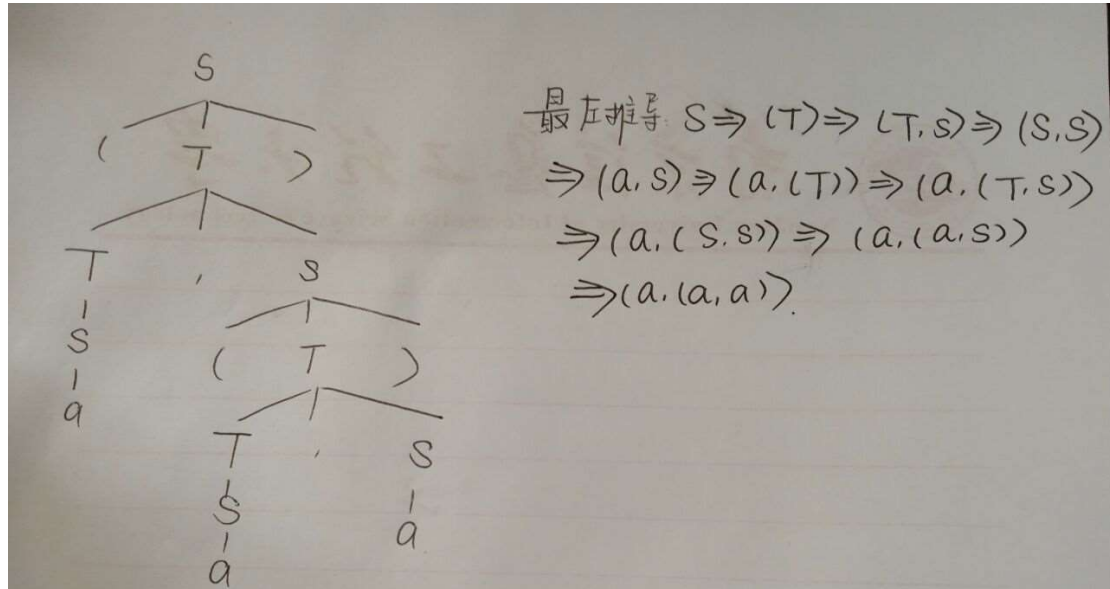 S
( T )
T , S
S
a
( T )
T , S
S
a
a
最左推导: S⇒(T)⇒(T,S)⇒(S,S)
⇒(a,S)⇒(a,(T))⇒(a,(T,S))
⇒(a,(S,S))⇒(a,(a,S))
⇒(a,(a,a)).